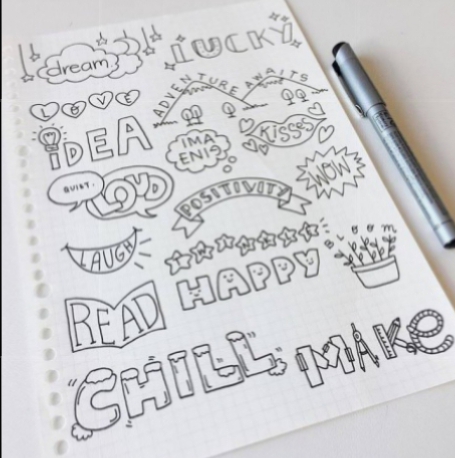 dream
LUCKY
LOVE
ADVENTURE AWAITS
IDEA
IMA
ENIG
KISSES
QUIET.
LOUD
WOW
POSITIVITY
LAUGH
Bloom
HAPPY
READ
"CHILL"
MAKE